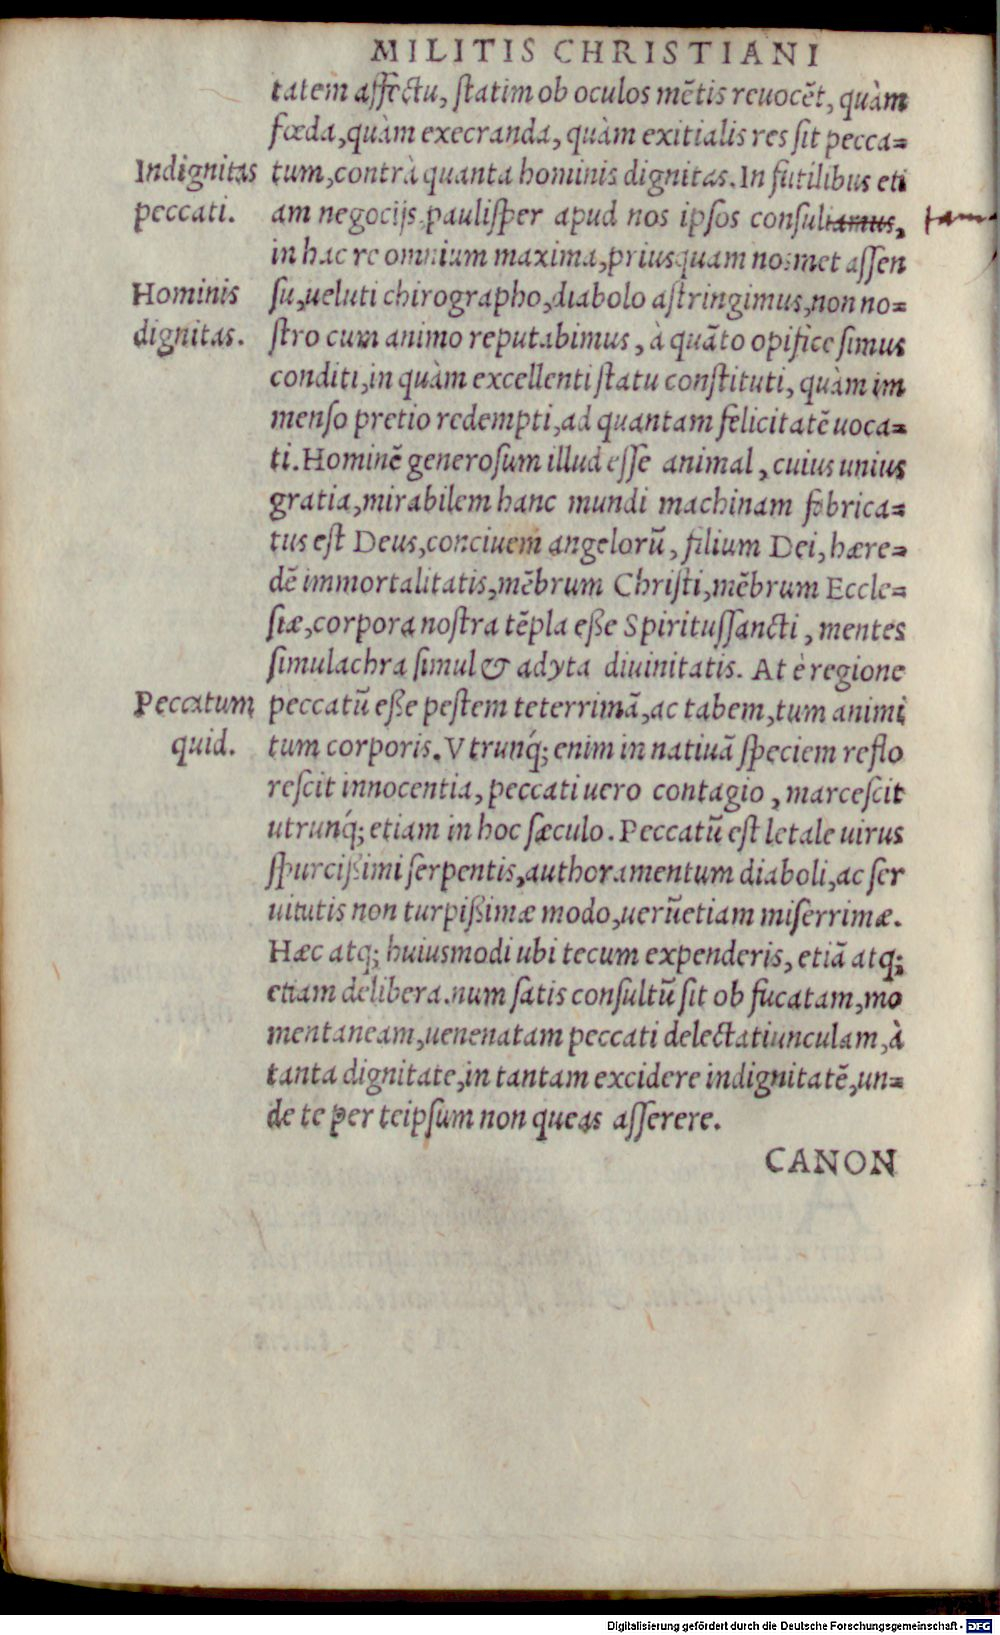 MILITIS CHRISTIANI
tatem affectu, statim ob oculos mētis reuocēt, quàm
fœda, quàm execranda, quàm exitialis res sit pecca=
Indignitas peccati.
tum, contrà quanta hominis dignitas. In futilibus eti
am negocijs paulisper apud nos ipsos consultamus,
in hac re omnium maxima, priusquam nosmet assen
Hominis dignitas.
su, ueluti chirographo, diabolo astringimus, non no=
stro cum animo reputabimus, à quāto opifice simus
conditi, in quàm excellenti statu constituti, quàm im
menso pretio redempti, ad quantam felicitatē uoca=
ti. Hominē generosum illud esse animal, cuius unius
gratia, mirabilem hanc mundi machinam fabrica=
tus est Deus, conciuem angelorū, filium Dei, hære=
dē immortalitatis, mēbrum Christi, mēbrum Eccle=
siæ, corpora nostra tēpla eße Spiritussancti, mentes
simulachra simul & adyta diuinitatis. At è regione
Peccatum quid.
peccatū eße pestem teterrimā, ac tabem, tum animi
tum corporis. Vtrunq́; enim in natiuā speciem reflo
rescit innocentia, peccati uero contagio, marcescit
utrunq́; etiam in hoc sæculo. Peccatū est letale uirus
spurcißimi serpentis, authoramentum diaboli, ac ser
uitutis non turpißimæ modo, uerūetiam miserrimæ.
Hæc atq; huiusmodi ubi tecum expenderis, etiā atq;
etiam delibera. num satis consultū sit ob fucatam, mo
mentaneam, uenenatam peccati delectatiunculam, à
tanta dignitate, in tantam excidere indignitatē, un=
de te per teipsum non queas asserere.
CANON
Digitalisierung gefördert durch die Deutsche Forschungsgemeinschaft - DFG